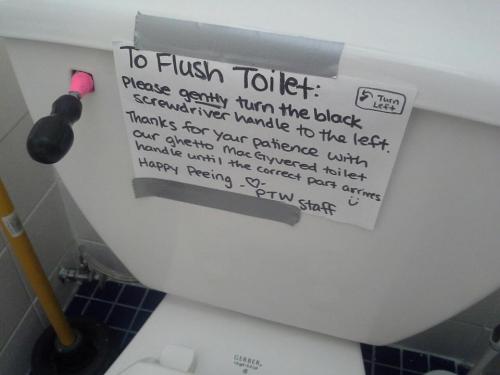 To Flush Toilet:
Please gently turn the black
screwdriver handle to the left.
Turn
Left
Thanks for your patience with
our ghetto MacGyvered toilet
handle until the correct part arrives
Happy Peeing -♡-
PTW Staff
GERBER